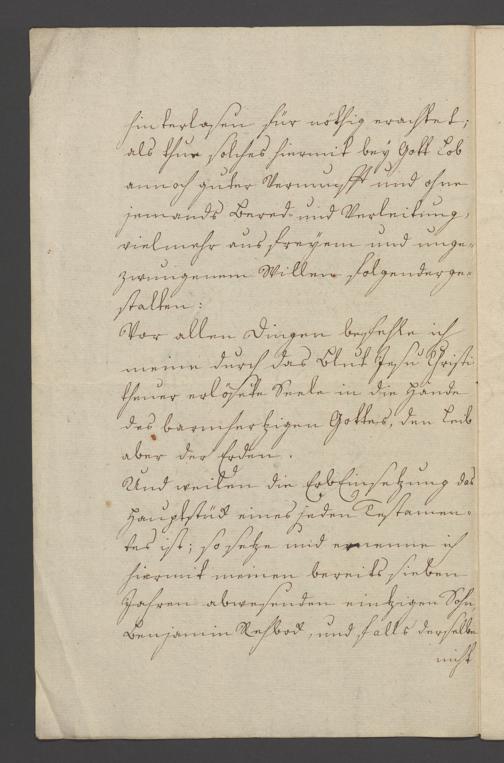 hinterlasen für nöthig erachtet;
als thue solches hiermit bey Gott Lob
annoch guter Vernunfft und ohne
jemands Bered- und Verleitung,
vielmehr aus freyem und unge-
zwungenem Willen folgenderge-
stalten:
Vor allen Dingen befehle ich
meine durch das Blut Jesu Christi
theuer erlösete Seele in die Hände
des barmhertzigen Gottes, den Leib
aber der Erden.
Und weilen die ErbEinsetzung das
Hauptstück eines jeden Testamen-
tes ist; so setze und ernenne ich
hiermit meinen bereits sieben
Jahren abwesenden eintzigen Sohn,
Benjamin Rehbock, und falls derselbe
nicht